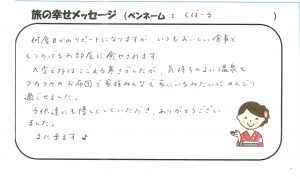 旅の幸せメッセージ (ペンネーム : くぼーる )
何度目かのリピートになりますが、いつもおいしい食事と
くつろげるお部屋に癒やされます
大雪で外はこごえる寒さでしたが、気持ちのよい温泉と
フカフカのお布団で家族みんなで家にいるみたいに、のんびり
過ごせました。
子供達にも優しくしていただき、ありがとうござい
ました。
また来ます♪